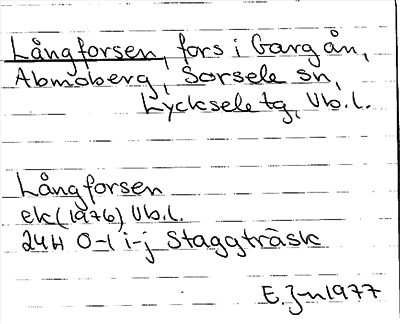 Långforsen, fors i Gargån,
Abmoberg, Sorsele sn,
Lycksele tg, Vb.l.
Långforsen
ek (1976) Vb.l.
24H 0-1 i-j Staggträsk
E. J-n 1977